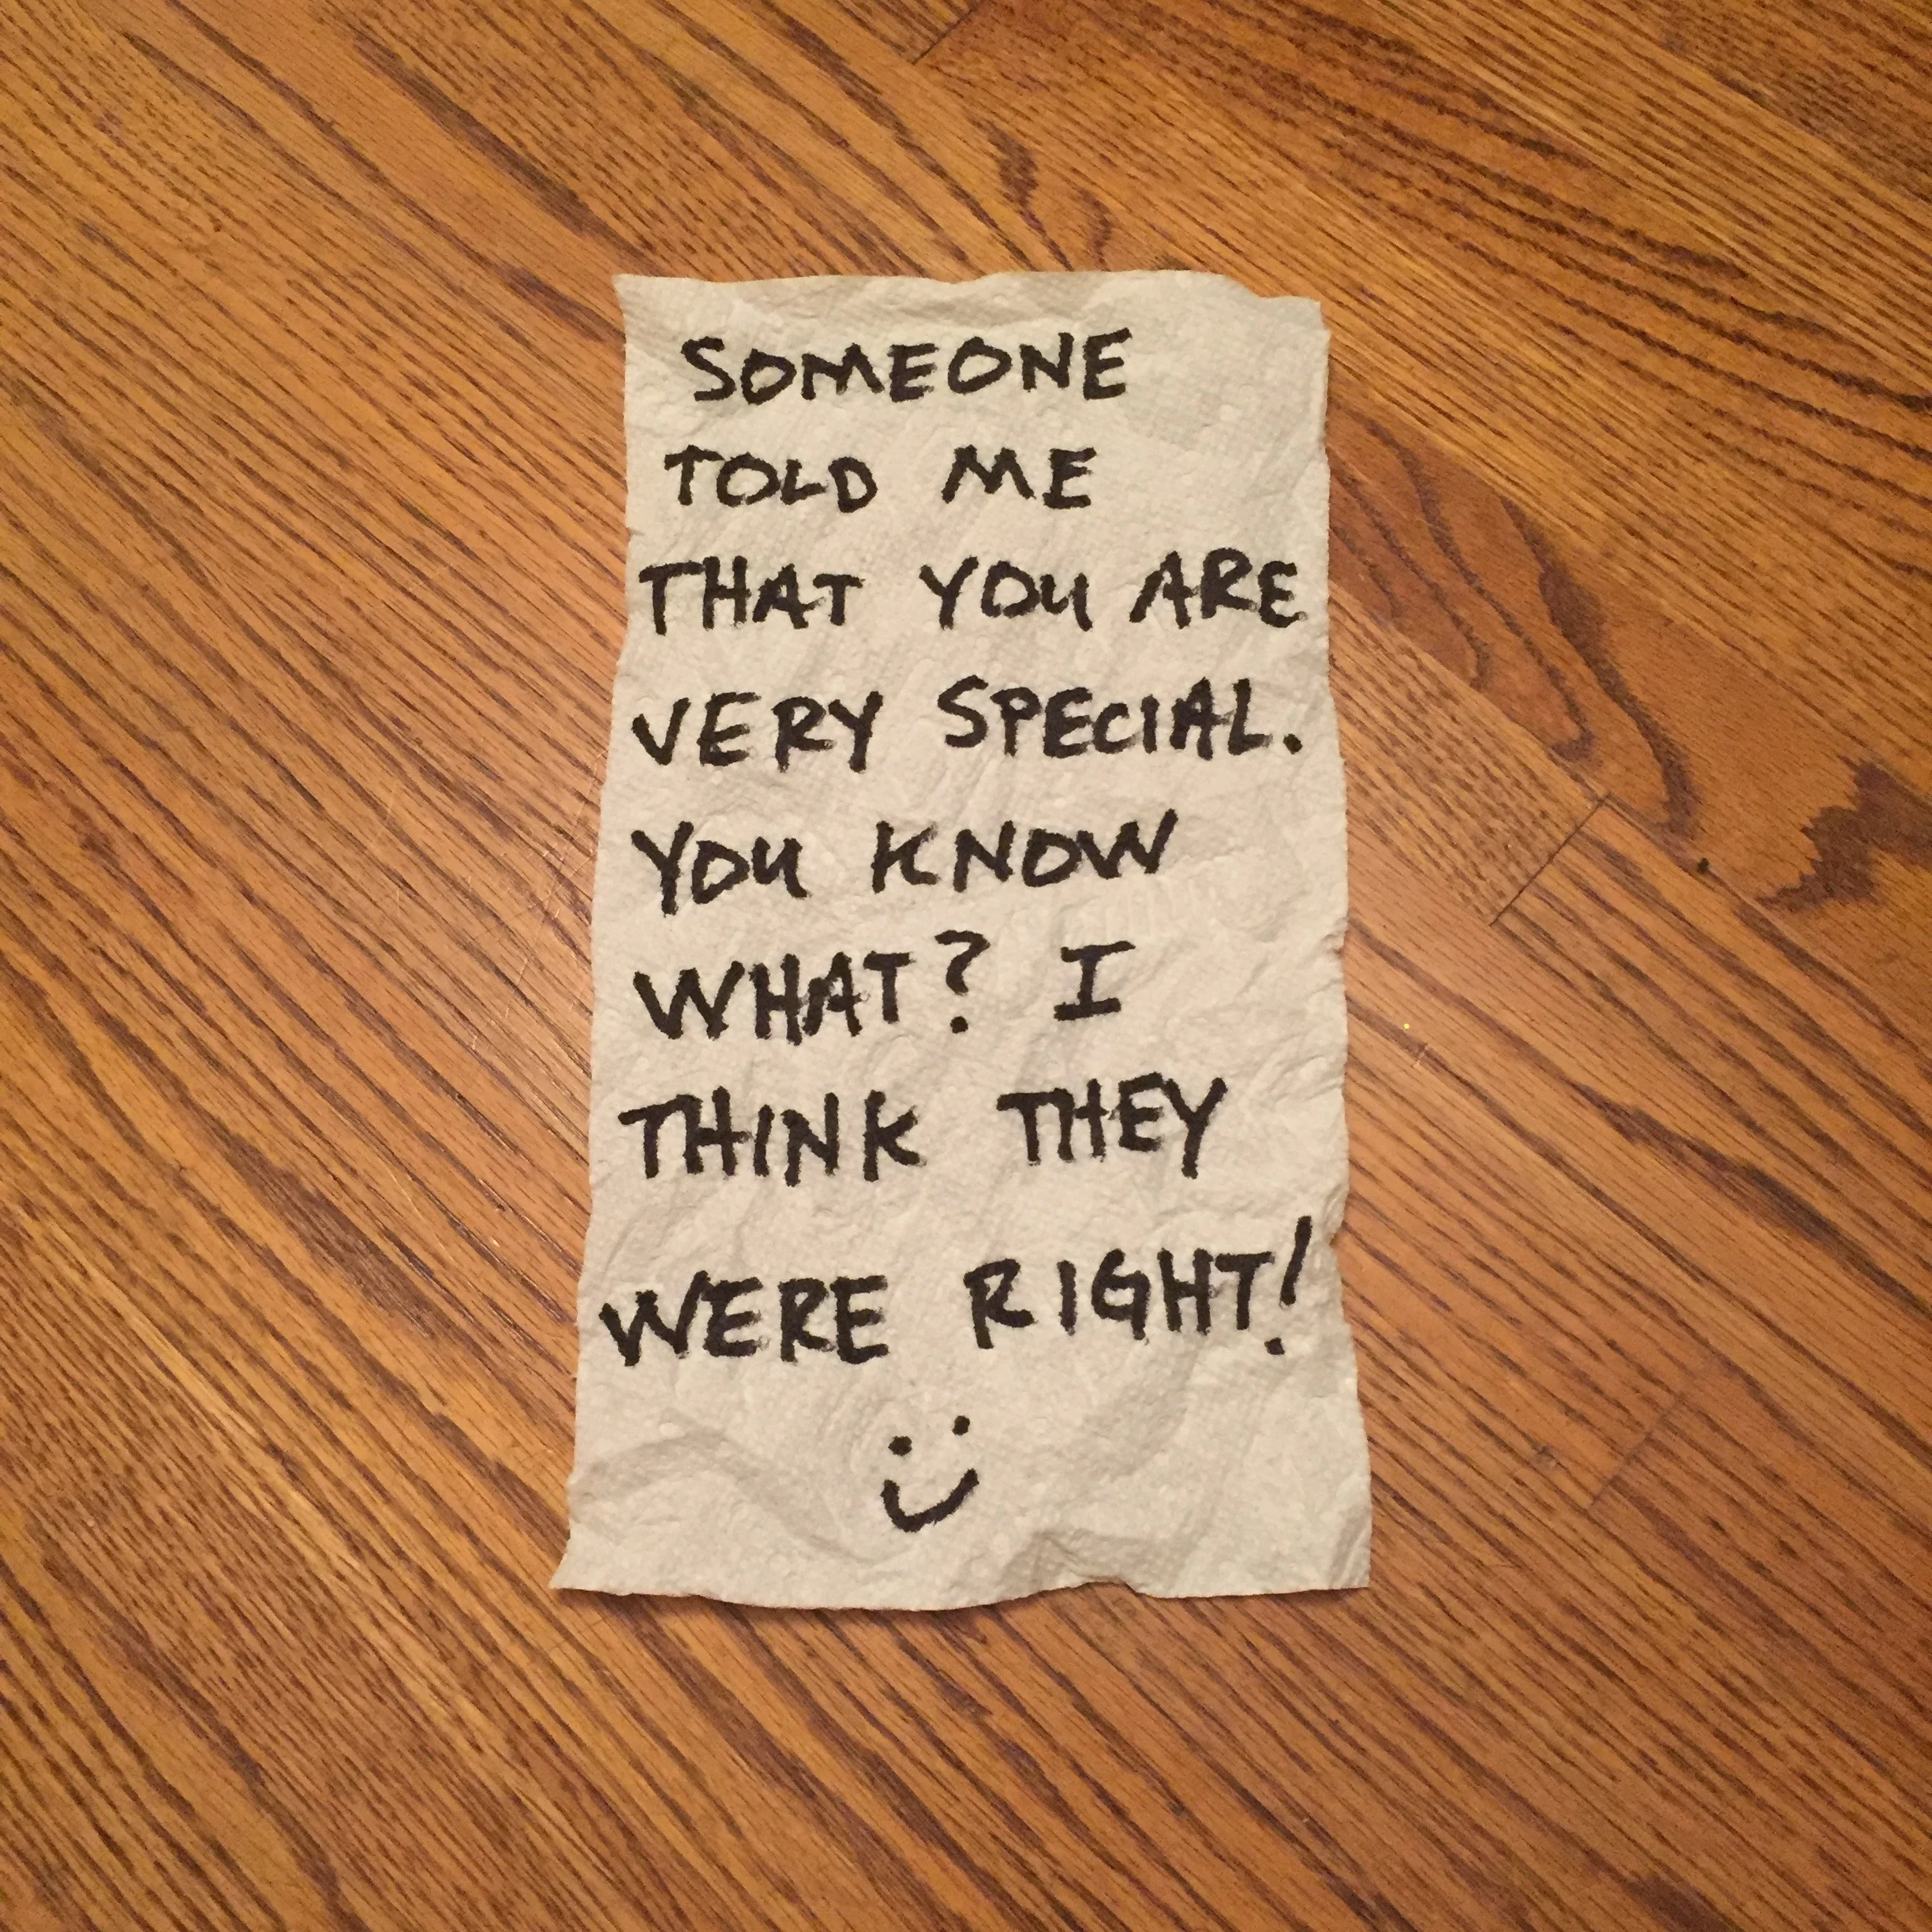 SOMEONE
TOLD ME
THAT YOU ARE
VERY SPECIAL.
YOU KNOW
WHAT? I
THINK THEY
WERE RIGHT!